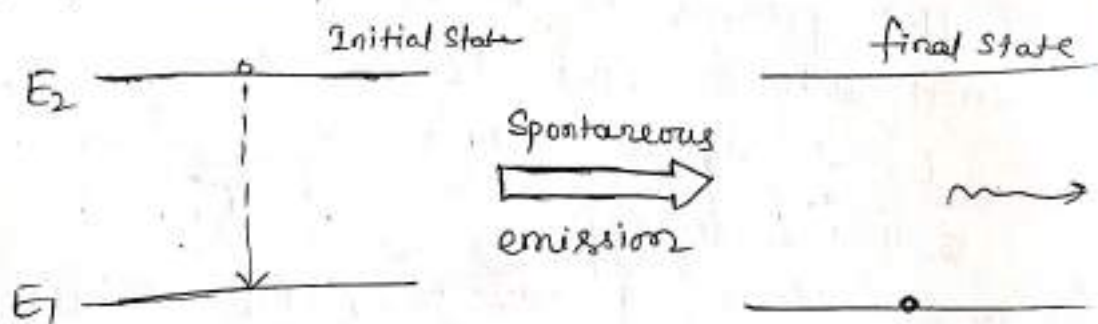 Initial State
final state
E2
Spontaneous
emission
E1